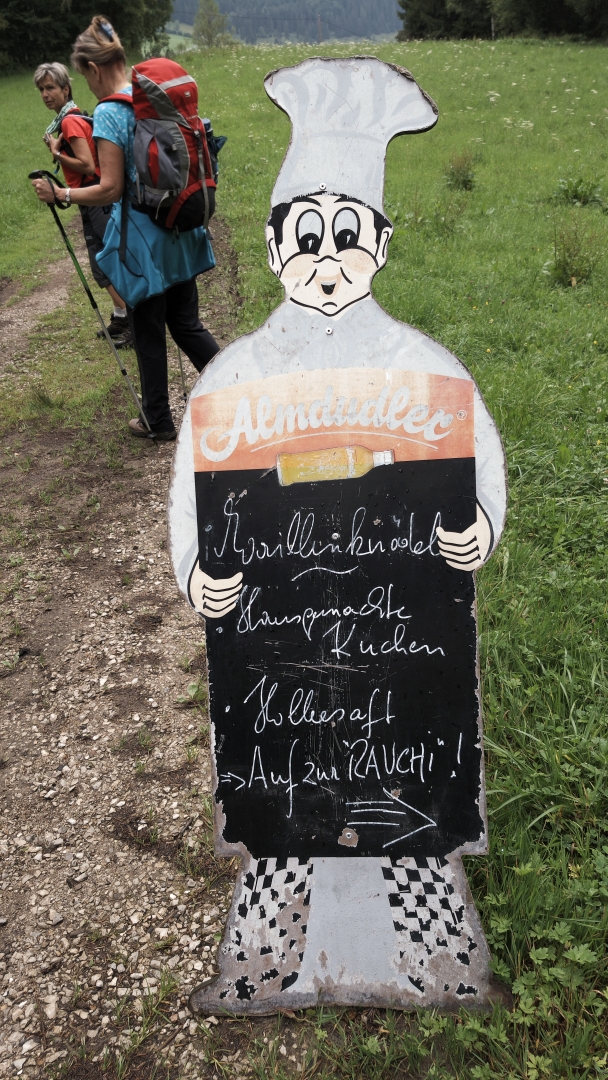 Almdudler
Marillenknödel
Hausgemachte
Kuchen
Hollersaft
⇒ Auf zur "RAUCHI"!